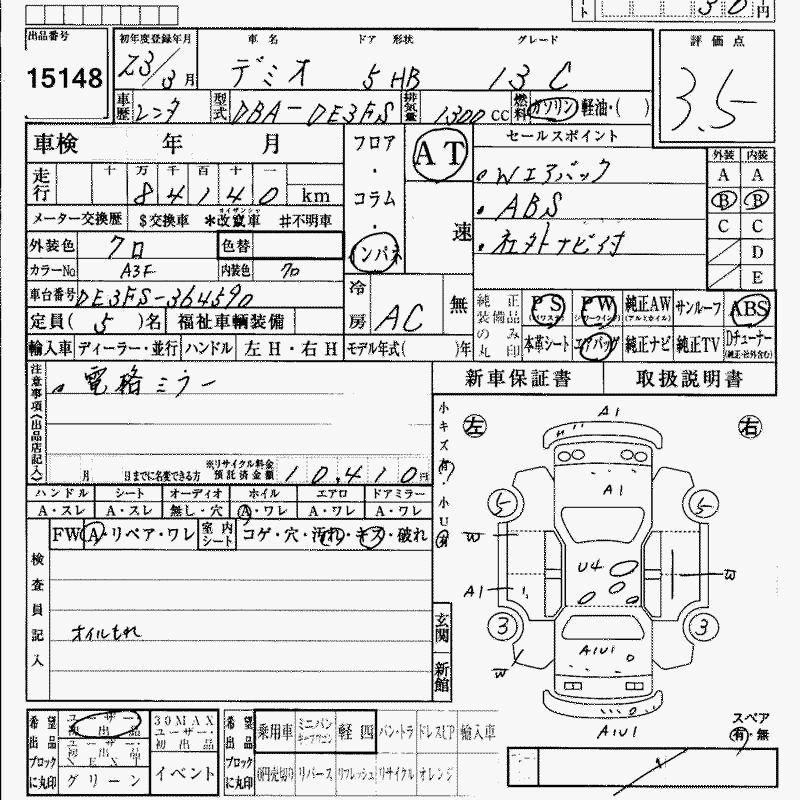 30 円
出品番号
15148
初年度登録年月 車名 ドア 形状 グレード
23/3月 デミオ 5 HB 13 C
評価点
3.5
車歴 レンタ 型式 DBA-DE3FS 排気量 1300 CC 燃料 ガソリン 軽油・( )
車検 年 月
フロア・コラム・インパネ
AT
速
セールスポイント
・Wエアバック
・ABS
・社外ナビ付
外装 内装
A A
B B
C C
D
E
走行 十 万 千 百 十 一
84140 km
メーター交換歴 $交換車 *改竄車 #不明車
外装色 クロ 色替
カラーNo A3F 内装色 クロ
車台番号 DE3FS-364590
定員( 5 )名 福祉車輌装備
冷房 AC 無
純正装備品のみ丸印
PS PW 純正AW サンルーフ ABS
(パワステ) (パワーウインド) (アルミホイル)
本革シート エアバッグ 純正ナビ 純正TV Dチューナー
(純正・社外含む)
輸入車 ディーラー・並行 ハンドル 左H・右H モデル年式( )年
新車保証書 取扱説明書
注意事項(出品店記入)
・電格ミラー
月 日までに名変できる方 ※リサイクル料金預託済金額 10,410円
ハンドル シート オーディオ ホイル エアロ ドアミラー
A・スレ A・スレ 無し・穴 A・ワレ A・ワレ A・ワレ
FW A・リペア・ワレ 室内シート コゲ・穴・汚れ・キズ・破れ
検査員記入
オイルもれ
小キズ有・小U有
左 右
A1
A1
5 5
W
U4
W
A1
3 3
A1U1
W
A1U1
玄関
新館
スペア
有・無
希望出品ブロックに丸印
ユーザー初出品
ユーザー初出品NEXT
グリーン
30MAXユーザー・初出品
イベント
希望出品ブロックに丸印
乗用車 ミニバン 軽四 バン・トラ ドレスUP 輸入車
0円売切り リバース リフレッシュ リサイクル オレンジ